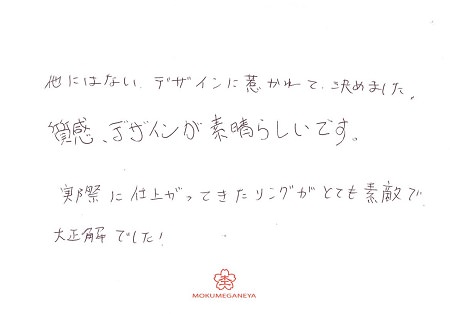 他にはない、デザインに惹かれて、決めました。
質感、デザインが素晴らしいです。
実際に仕上がってきたリングがとても素敵で
大正解でした!
MOKUMEGANEYA